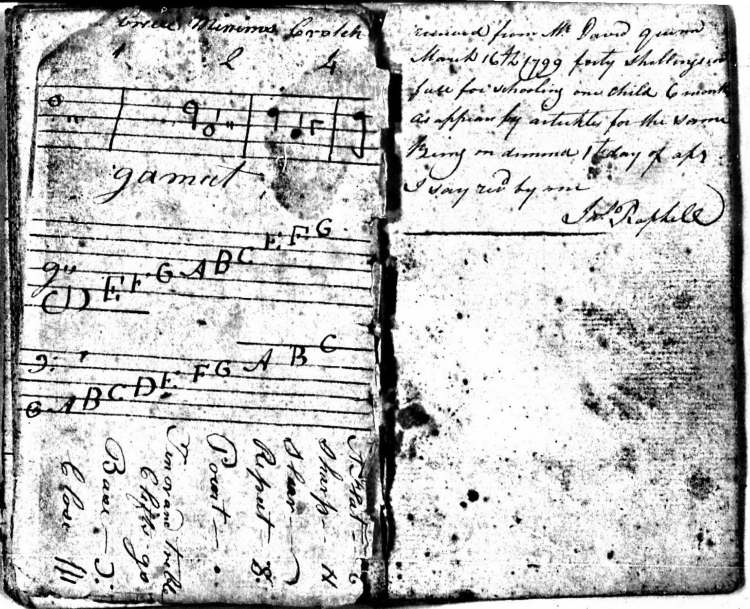 Minims Crotch
1 2 4
gamut
E F G
G A B C
C D E F
A B C
F G
G A B C D E
A Flat — b
Sharp — #
Slur —
Repeat — :S:
Point — .
Tenor and Treble
Cliffs
Base — Ɔ:
Close
received from Mr David
March 16th 1799 forty Shillings in
full for schooling one child 6 month
as appears by artickles for the same
Being on demand 1 day of apr
I say recd by me
Jno Raphell